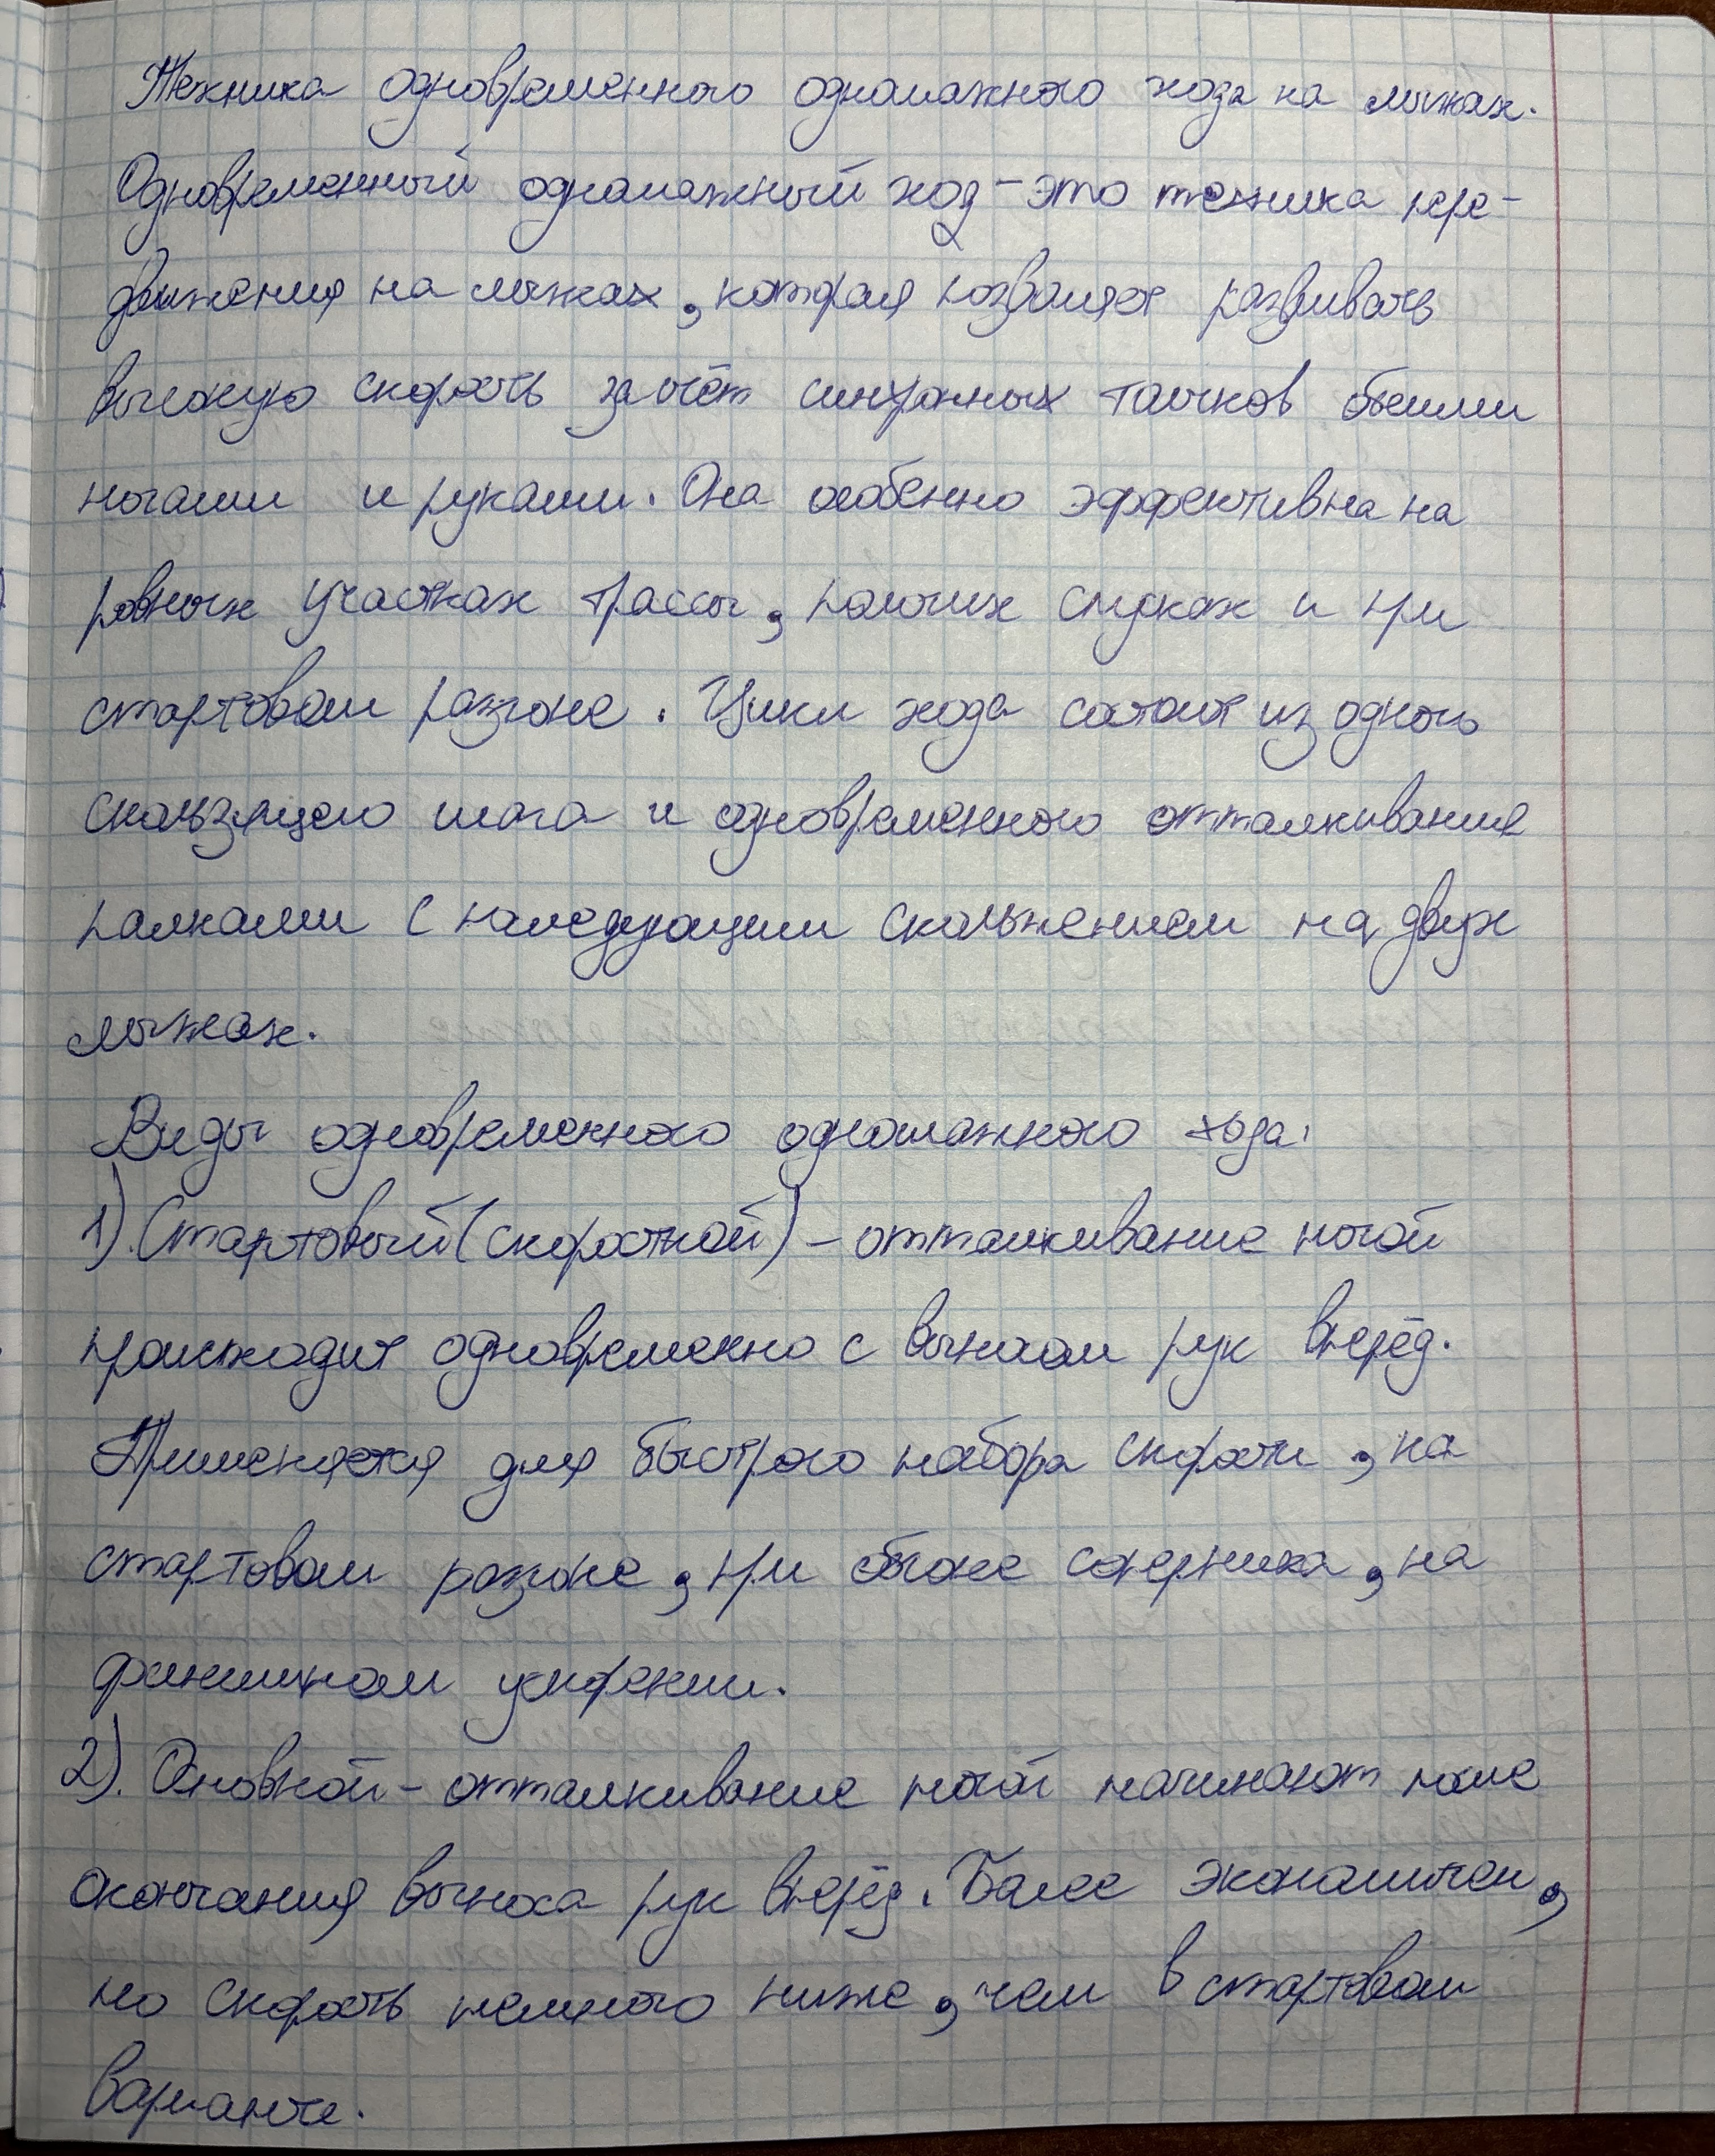 Техника одновременного одношажного хода на лыжах.
Одновременный одношажный ход – это техника пере-
движения на лыжах, которая позволяет развивать
высокую скорость за счёт синхронных толчков обеими
ногами и руками. Она особенно эффективна на
ровных участках трассы, пологих спусках и при
стартовом разгоне. Цикл хода состоит из одного
скользящего шага и одновременного отталкивания
палками с последующим скольжением на двух
лыжах.
Виды одновременного одношажного хода:
1). Стартовый (скоростной) – отталкивание ногой
происходит одновременно с выносом рук вперёд.
Применяется для быстрого набора скорости, на
стартовом разгоне, при обгоне соперника, на
финишном ускорении.
2). Основной – отталкивание ногой начинают после
окончания выноса рук вперёд. Более экономичен,
но скорость немного ниже, чем в стартовом
варианте.